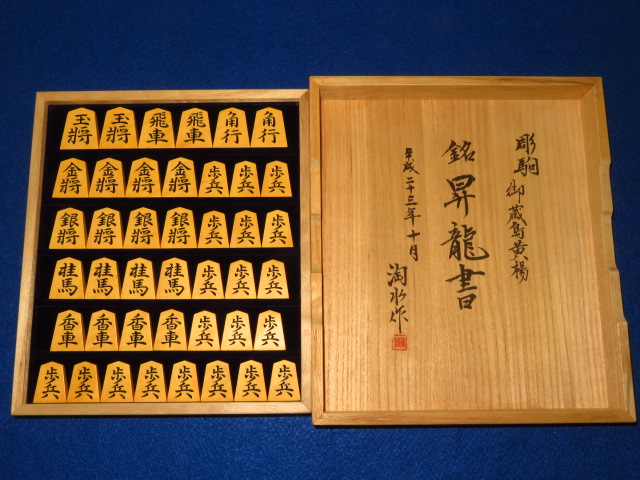 玉将 玉将 飛車 飛車 角行 角行
金将 金将 金将 金将 歩兵 歩兵 歩兵
銀将 銀将 銀将 銀将 歩兵 歩兵 歩兵
桂馬 桂馬 桂馬 桂馬 歩兵 歩兵 歩兵
香車 香車 香車 香車 歩兵 歩兵 歩兵
歩兵 歩兵 歩兵 歩兵 歩兵 歩兵 歩兵 歩兵
彫駒 御蔵島黄楊
銘 昇龍書
平成二十三年十月
淘水作